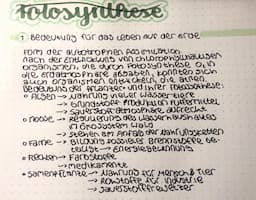 Fotosynthese
1 Bedeutung für das Leben auf der Erde
Form der autotrophen Assimilation
nach der Entwicklung von chlorophyllhaltigen
Organismen, die durch Fotosynthese O₂ in
die Erdatmosphäre abgaben, konnten sich
auch Organismen entwickeln, die atmen
Bedeutung der Pflanzen und ihrer Fotosynthese:
• Algen → Nahrung vieler Wassertiere
→ Grundstoff Produktion Futtermittel
→ Sauerstoff Atmosphäre
• Moose → Regulierung des Wasserhaushaltes
im Ökosystem Wald
→ stehen am Anfang der Nahrungsketten
• Farne → Bildung fossiler Brennstoffe
→ Energiegewinnung
• Flechten → Farbstoffe
→ Medikamente
• Samenpflanze → Nahrung für Mensch & Tier
→ Rohstoffe für Industrie
→ Sauerstofflieferant